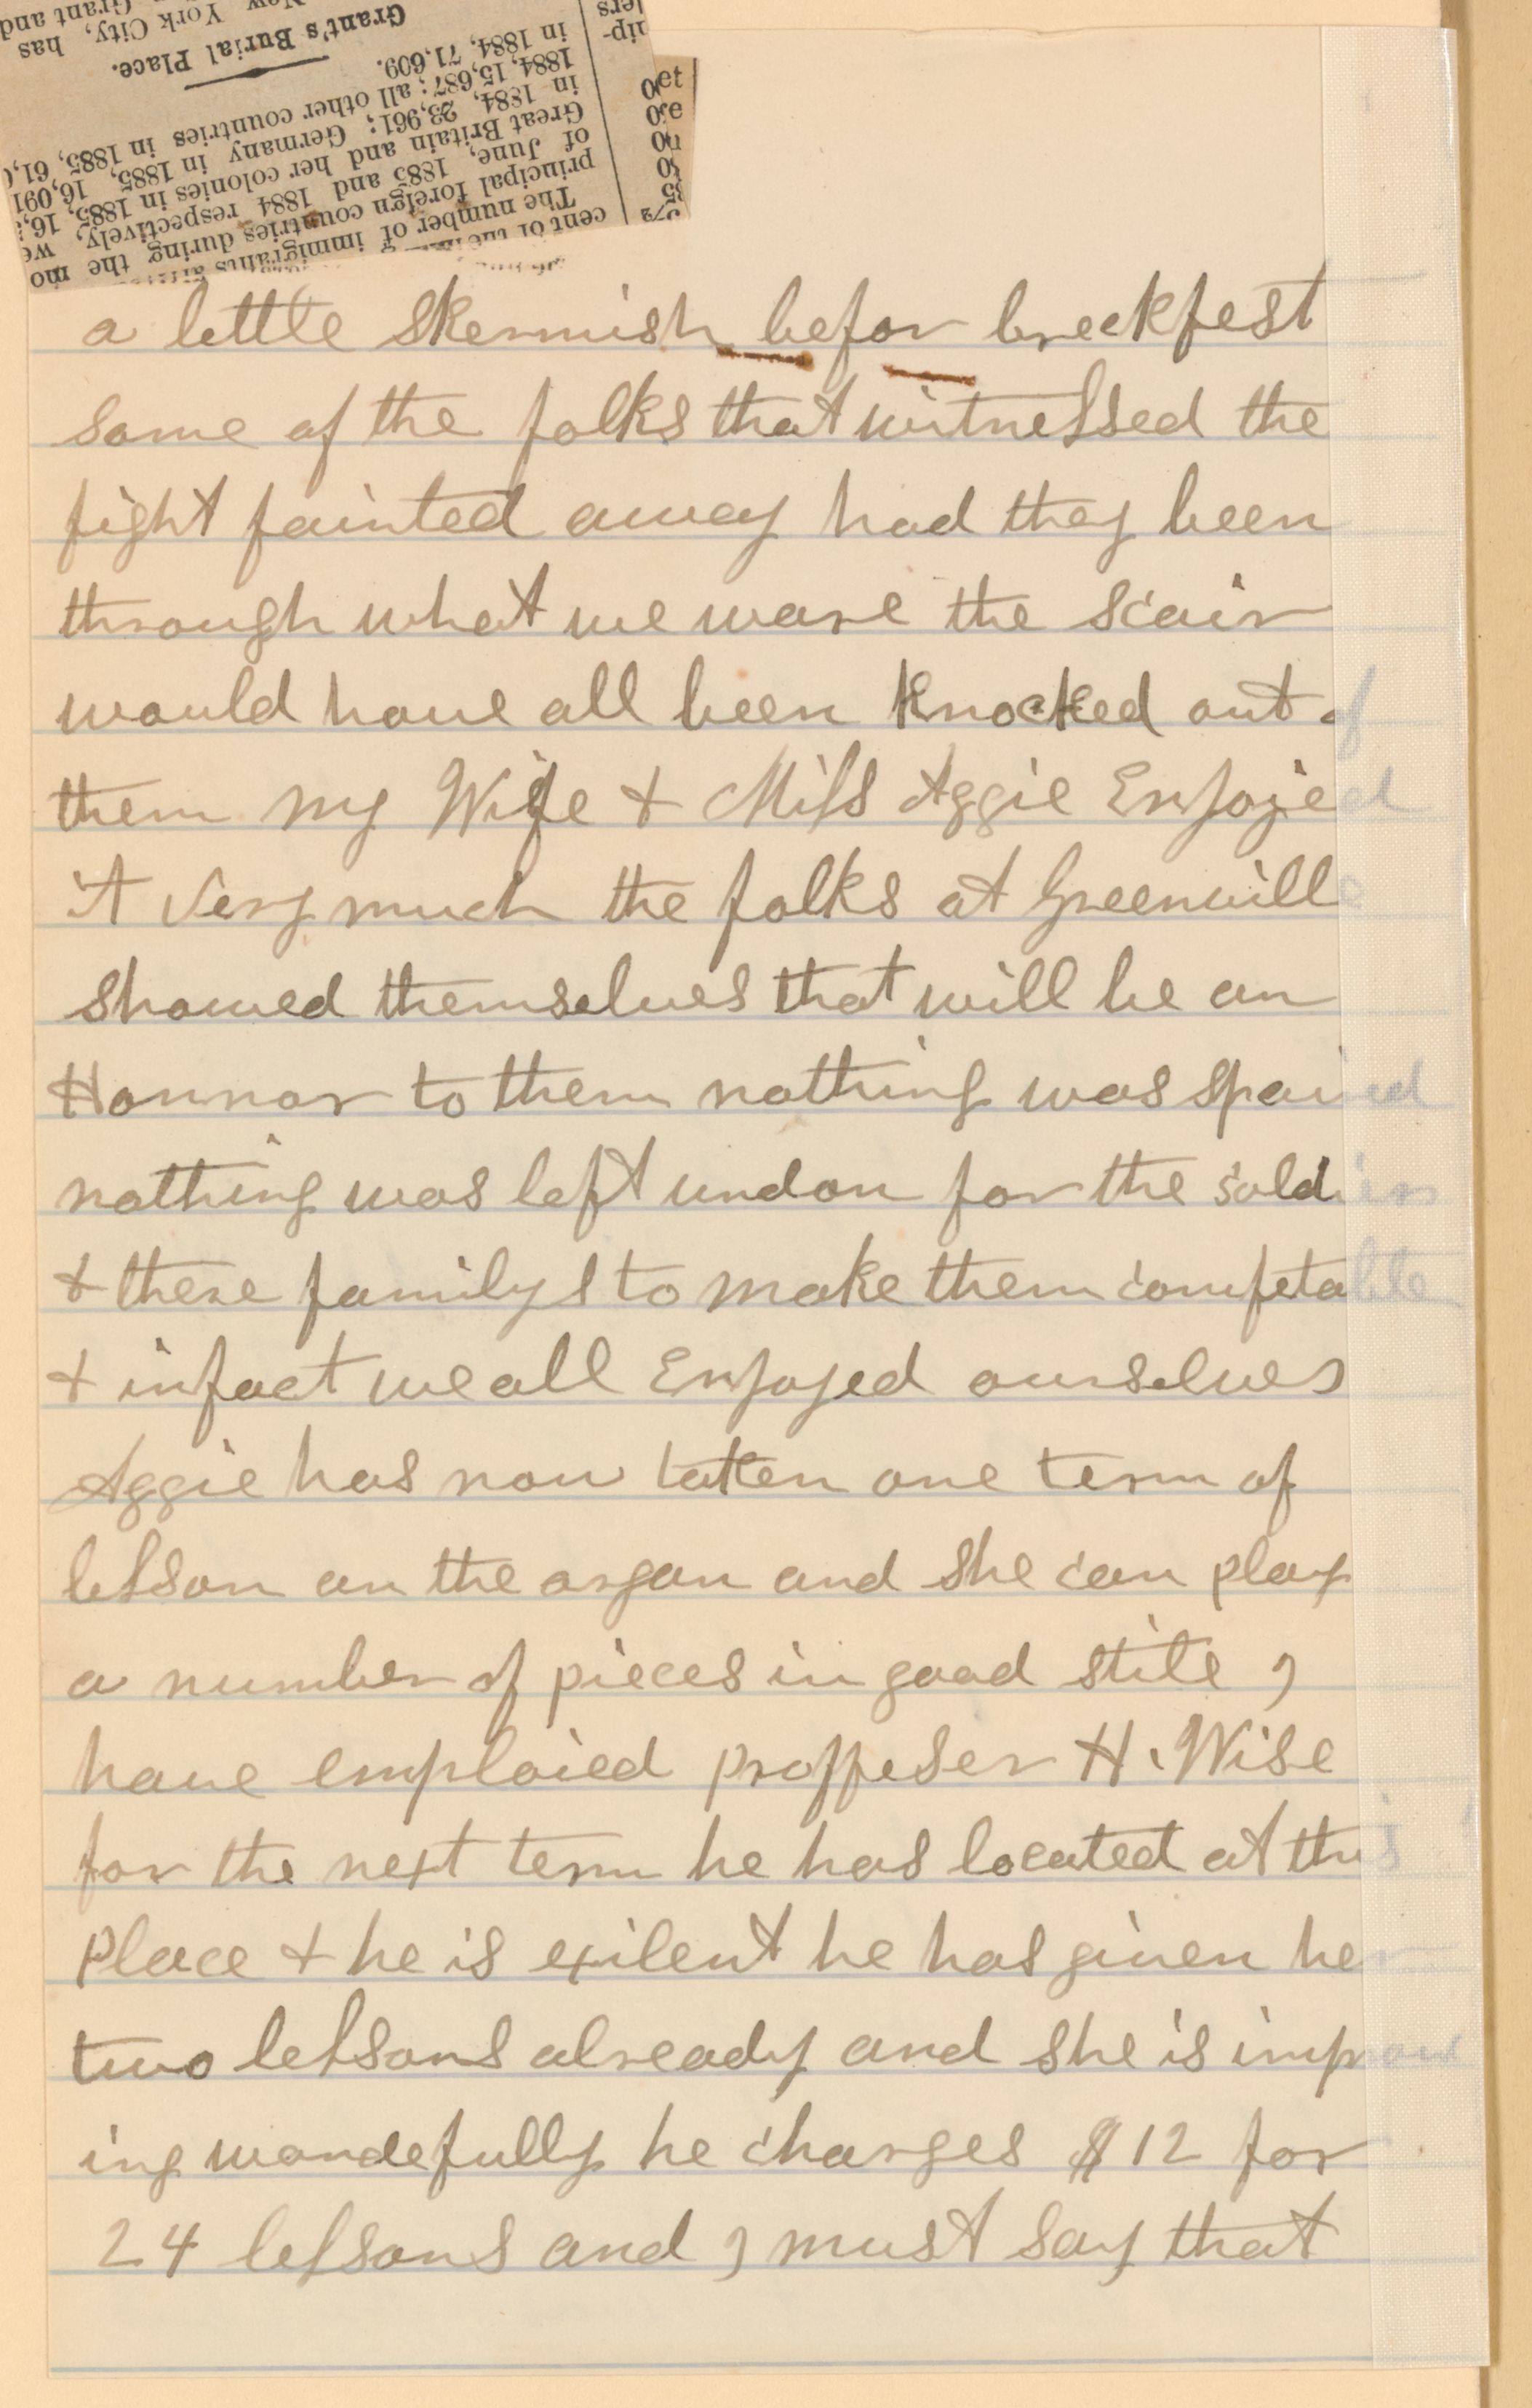 New York City, has
Grant and
Grant's Burial Place.
in 1884, 71,609.
1884, 15,687; all other countries in 1885, 61,
in 1884, 23,961; Germany in 1885, 16,091
Great Britain and her colonies in 1885, 16,
of June, 1885 and 1884 respectively, we
principal foreign countries during the mo
The number of immigrants
cent of the
a little skermish befor breckfest
some of the folks that witnessed the
fight fainted away had they been
through what we ware the scair
would have all been knocked out of
them my Wife & Miss Aggie Enjoyed
it very much the folks at Greenville
showed themselves that will be an
Honnor to them nothing was spaired
nothing was left undon for the soldiers
& there familys to make them comfetable
& infact we all Enjoyed ourselves
Aggie has now taken one term of
lesson on the organ and she can play
a number of pieces in good stile I
have emploied proffeser H. Wise
for the next term he has located at this
Place & he is exilent he has given her
two lessons already and she is improv
ing wondefully he charges $12 for
24 lessons and I must say that